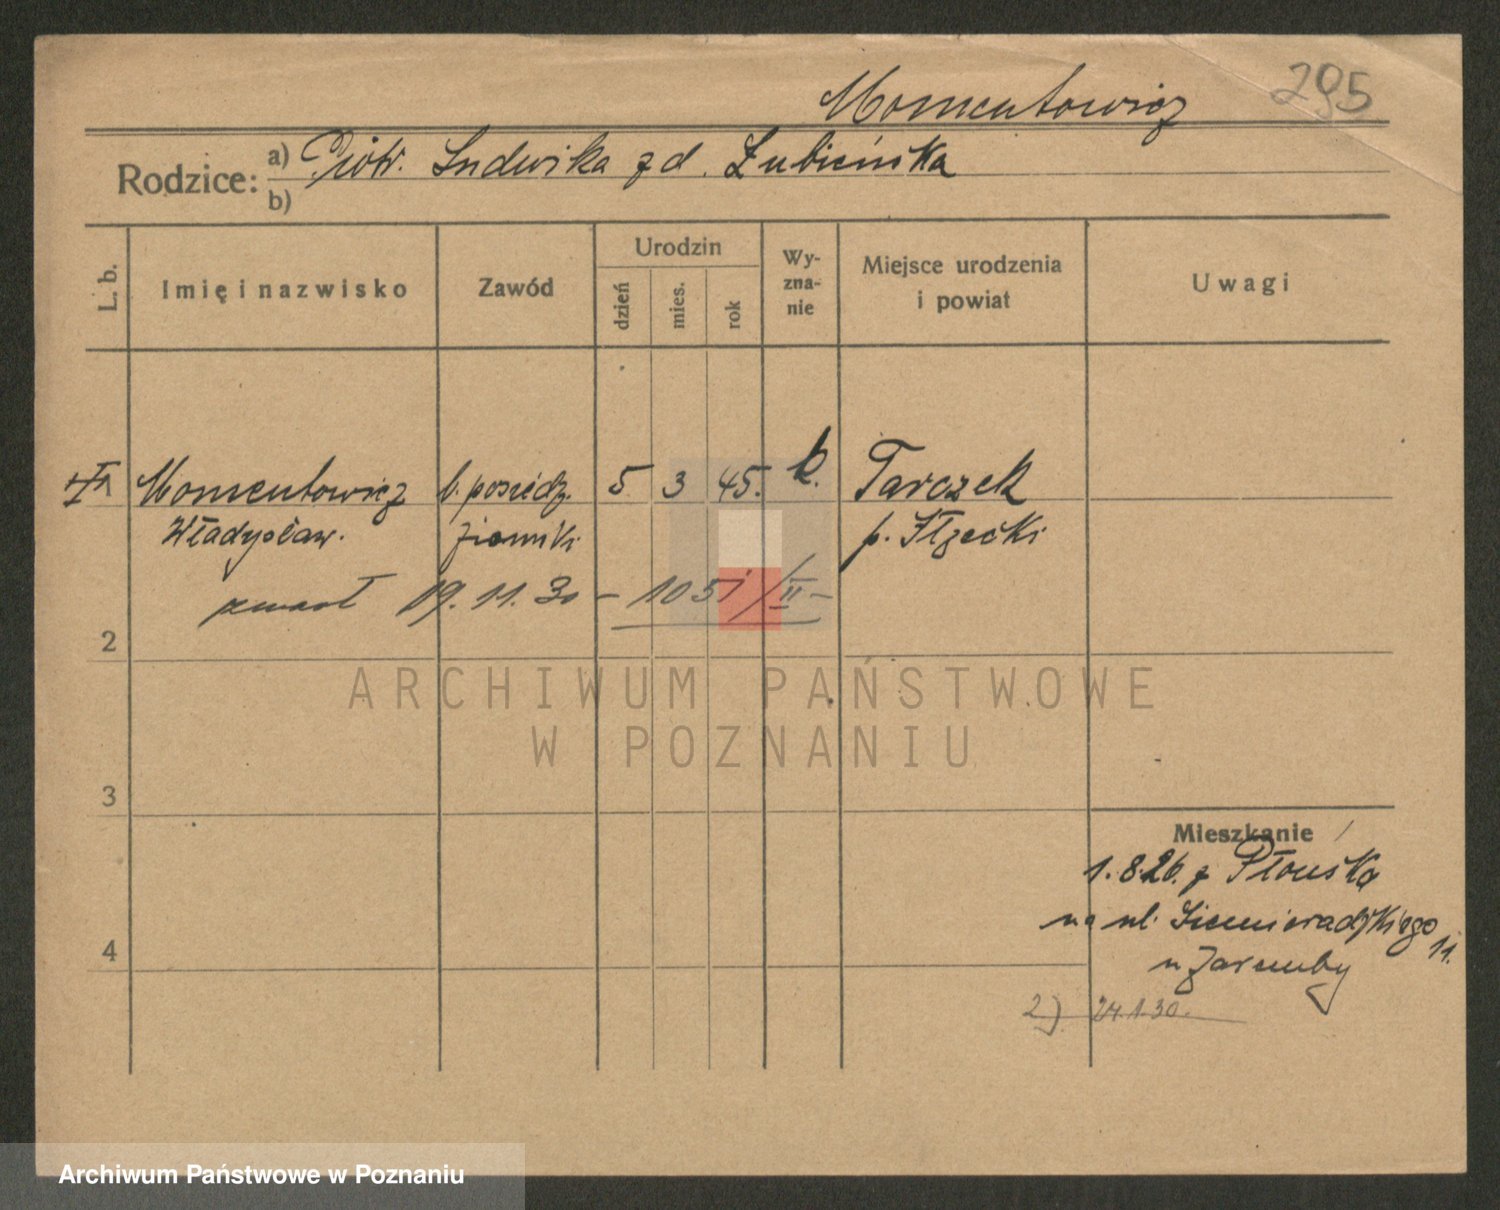 Momentowicz 295
Rodzice: a) Piotr. Ludwika zd. Łubieńska
b)
L. b. Imię i nazwisko Zawód Urodzin dzień mies. rok Wy-zna-nie Miejsce urodzenia i powiat Uwagi
1 Momentowicz b. posiedz. 5 3 45. k. Tarczek
Władysław. ziemski p. Iłżecki
zmarł 19.11.30 – 1051/II –
2
ARCHIWUM PAŃSTWOWE
W POZNANIU
3
Mieszkanie
1.8.26. z Płońska
na ul. Siemieradzkiego 11.
4
u Zaremby
2) 24.1.30.
Archiwum Państwowe w Poznaniu